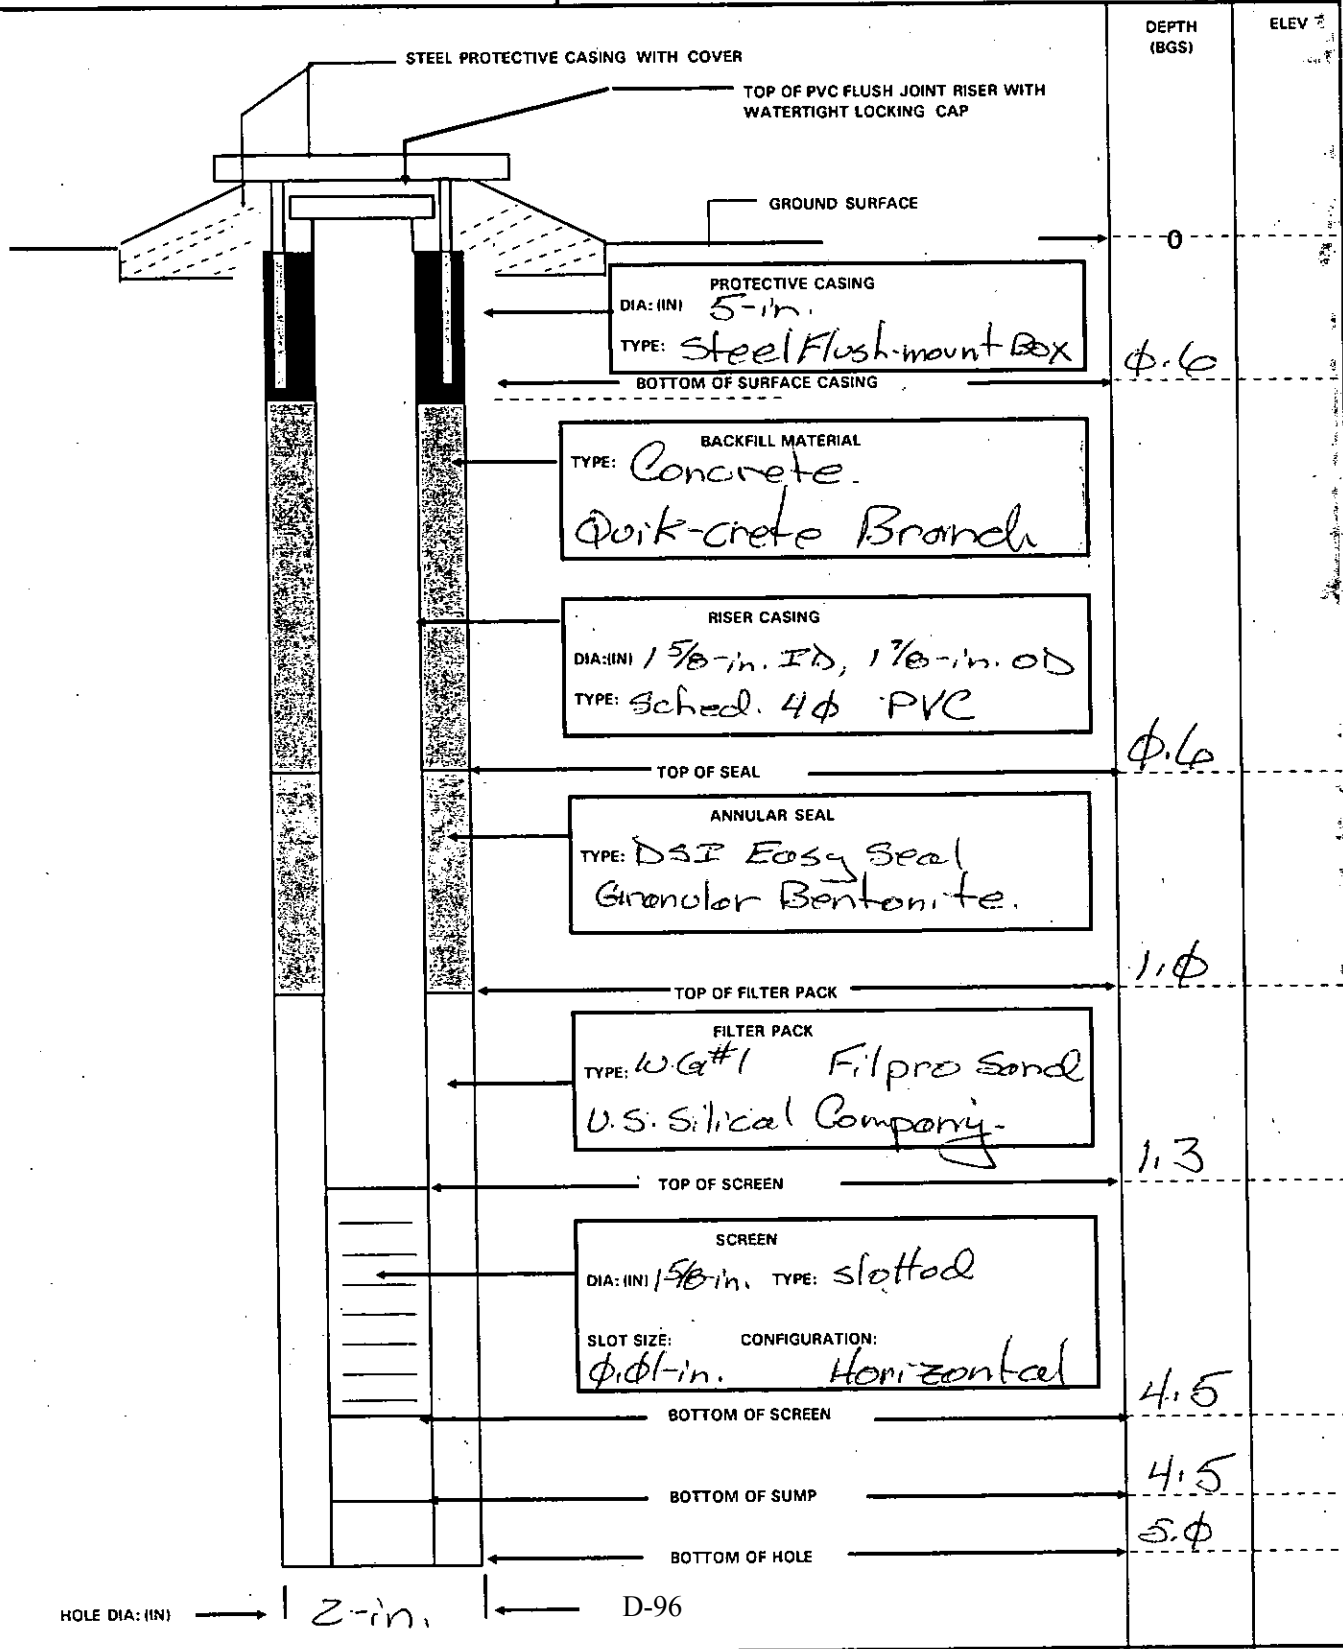 DEPTH
(BGS)
ELEV
STEEL PROTECTIVE CASING WITH COVER
TOP OF PVC FLUSH JOINT RISER WITH
WATERTIGHT LOCKING CAP
GROUND SURFACE
0
PROTECTIVE CASING
DIA: (IN) 5-in.
TYPE: Steel Flush-mount Box
BOTTOM OF SURFACE CASING
Ø.6
BACKFILL MATERIAL
TYPE: Concrete.
Quik-crete Brand
RISER CASING
DIA:(IN) 1 5/8-in. ID, 1 7/8-in. OD
TYPE: Sched. 4Ø PVC
TOP OF SEAL
Ø.6
ANNULAR SEAL
TYPE: DSI Easy Seal
Granular Bentonite.
TOP OF FILTER PACK
1.Ø
FILTER PACK
TYPE: W.G #1 Filpro Sand
U.S. Silical Company.
TOP OF SCREEN
1.3
SCREEN
DIA: (IN) 1 5/8-in. TYPE: slotted
SLOT SIZE: CONFIGURATION:
Ø.Ø1-in. Horizontal
BOTTOM OF SCREEN
4.5
BOTTOM OF SUMP
4.5
BOTTOM OF HOLE
5.Ø
HOLE DIA: (IN) 2-in.
D-96